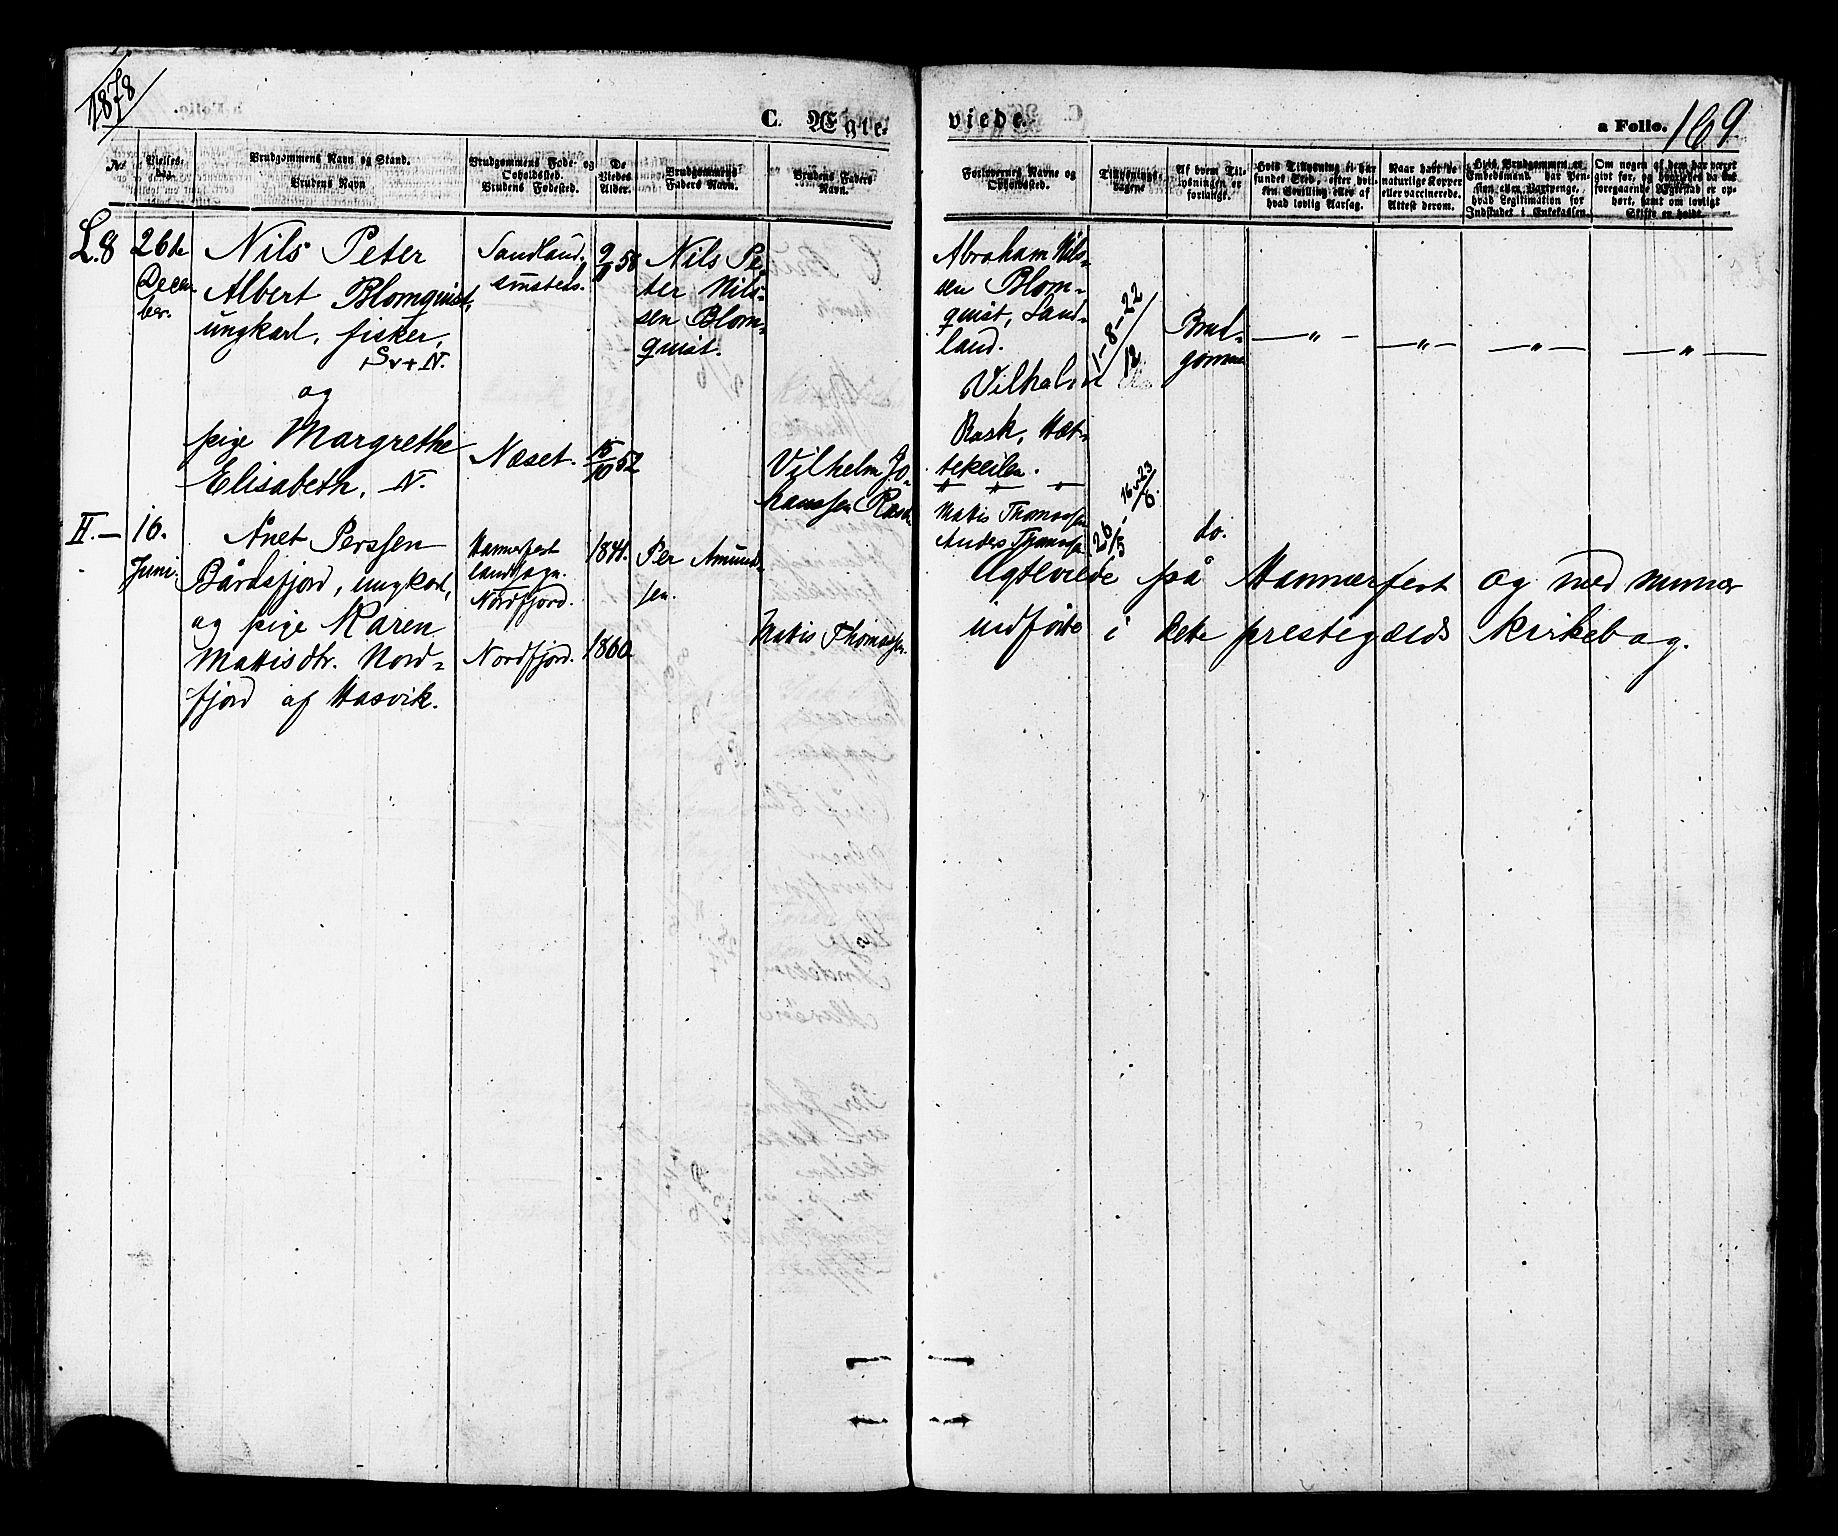 1878
C. Ægte-
viede.
a Folio. 169
No
Vielses-
dag.
Brudgommens Navn og Stand.
Brudens Navn
Brudgommens Føde- og
Opholdssted.
Brudens Fødested.
De
Viedes
Alder.
Brudgommens
Faders Navn.
Brudens Faders
Navn.
Forlovernes Navne og
Opholdssted.
Tillysnings-
dagene
Af hvem Til-
lysningen er
forlangt.
Hvis Tillysning ei har
fundet Sted, efter hvil-
ken Bevilling eller af
hvad lovlig Aarsag.
Naar havt de
naturlige Kopper
eller vaccinerede.
Attest derom.
Hvis Brudgommen er
Embedsmand har Pen-
sion eller Vartpenge,
hvad Legitimation for
Indskudet i Enkekassen.
Om nogen af dem har været
gift før, og hvorledes da det
foregaaende Ægteskab er op-
hørt, samt om lovligt
Skifte er holdt.
L.8
26de
Decem-
ber.
Nils Peter
Albert Blomquist,
ungkarl, fisker,
Sv + N.
og
pige Margrethe
Elisabeth, N.
Sandland,
smsteds.
Næset.
9/11 58
15/10 52
Nils Pe-
ter Nils-
sen Blom-
quist.
Vilhelm Jo-
hanssen Rask
Abraham Nils-
sen Blom-
quist, Sand-
land.
Vilhelm
Rask, Hæt-
tekeilen.
1-8-22/12
Brud-
gommen
— " —
— " —
— " —
— " —
II. —
16.
Juni.
Anet Perssen
Bårdsfjord, ungkarl,
og pige Karen
Mattisdtr. Nord-
fjord af Hasvik.
Hammerfest
landsogn.
Nordfjord.
Nordfjord.
1841.
1860
Per Amund-
sen.
Mattis Thomassen.
Mattis Thomassen
Anders Thomassen
26/5 - 16 & 23/6.
do.
Ægteviede på Hammerfest og med nummer
indførte i dette prestegjælds kirkebog.